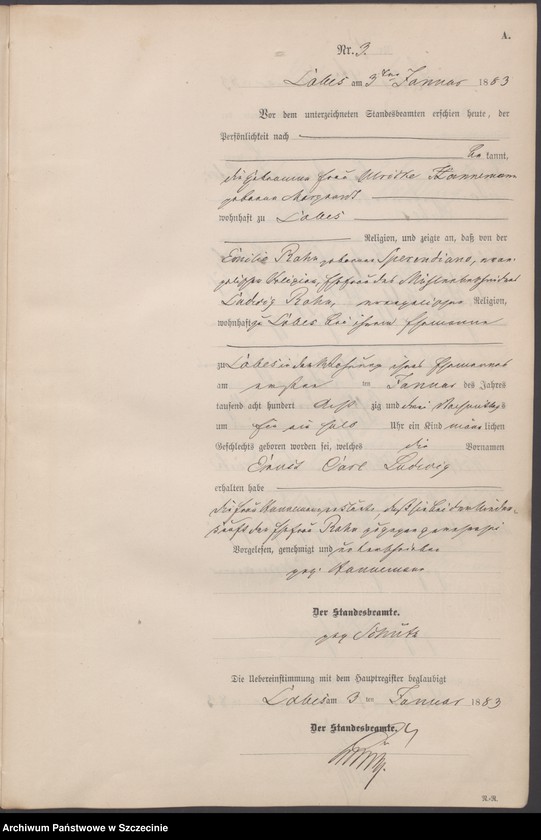 A.
Nr. 3.
Labes am 3ten Januar 1883
Vor dem unterzeichneten Standesbeamten erschien heute, der
Persönlichkeit nach
be kannt,
die Hebamme Frau Ulrike Hannemann
geborene
wohnhaft zu Labes
Religion, und zeigte an, daß von der
Emilie Rahn geborenen evan-
gelischer Religion, Ehefrau des
Ludwig Rahn, evangelischer Religion,
wohnhaft zu Labes bei ihrem Ehemanne
zu Labes in der Wohnung ihres Ehemannes
am ersten ten Januar des Jahres
tausend acht hundert acht zig und drei Nachmittags
um ein halb Uhr ein Kind männ lichen
Geschlechts geboren worden sei, welches die Vornamen
Ernst Carl Ludwig
erhalten habe
die Frau Hannemann erklärte, daß sie bei der Nieder-
kunft der Ehefrau Rahn zugegen gewesen sei
Vorgelesen, genehmigt und unterschrieben
gez. Hannemann
Der Standesbeamte.
gez. Schütz
Die Uebereinstimmung mit dem Hauptregister beglaubigt
Labes am 3 ten Januar 1883
Der Standesbeamte.
R.-R.
Archiwum Państwowe w Szczecinie